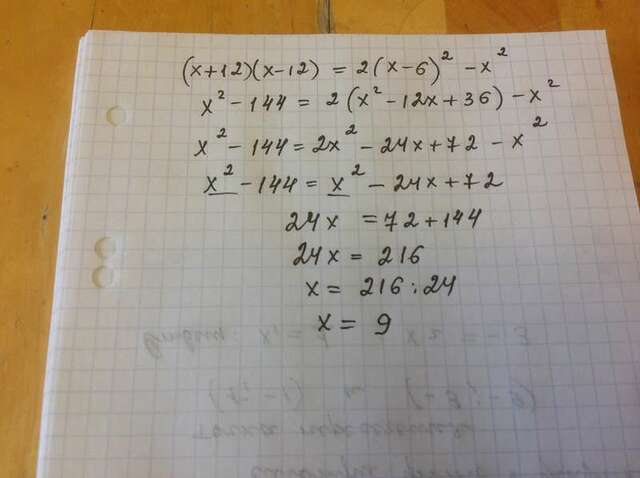 (x+12)(x-12) = 2(x-6)² - x²
x² - 144 = 2(x² - 12x + 36) - x²
x² - 144 = 2x² - 24x + 72 - x²
x² - 144 = x² - 24x + 72
24x = 72 + 144
24x = 216
x = 216 : 24
x = 9